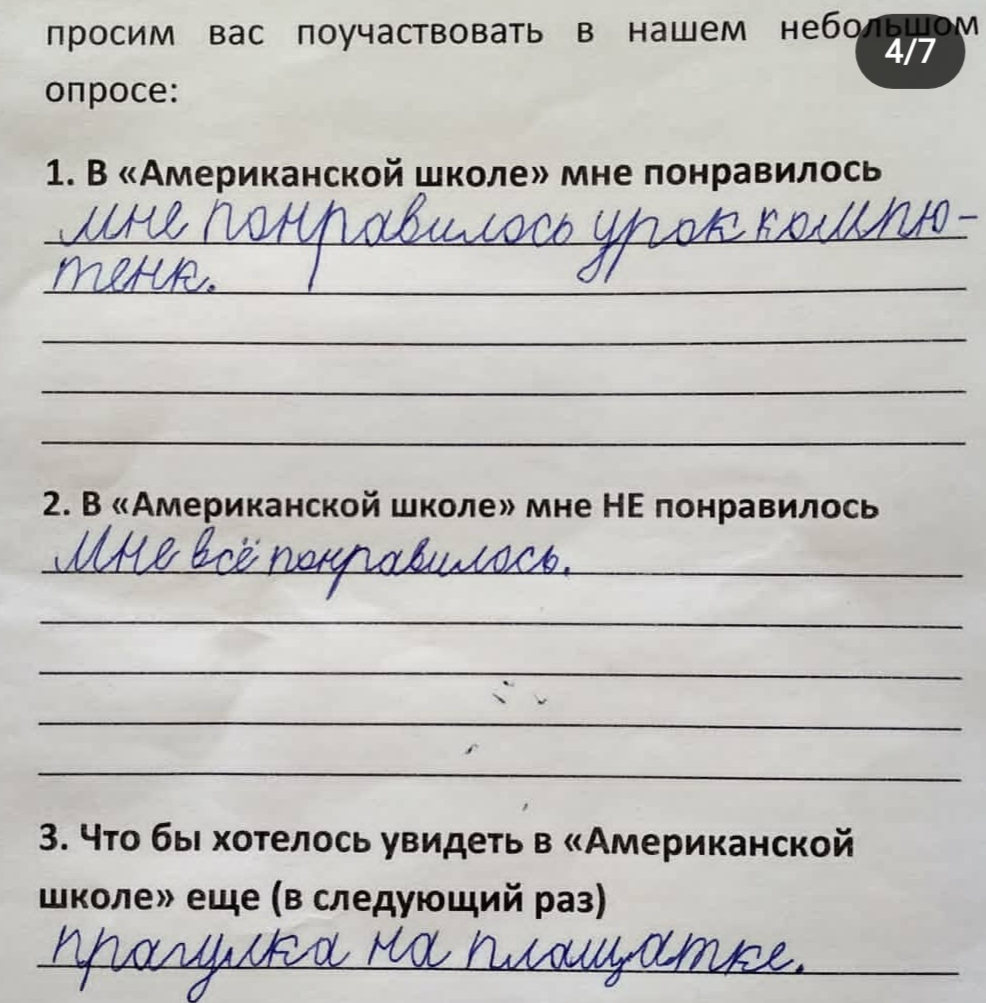 просим вас поучаствовать в нашем небольшом
4/7
опросе:
1. В «Американской школе» мне понравилось
мне понравилось урок компю-
тенк.
2. В «Американской школе» мне НЕ понравилось
Мне всё понравилось.
3. Что бы хотелось увидеть в «Американской
школе» еще (в следующий раз)
прагулка на площатке.